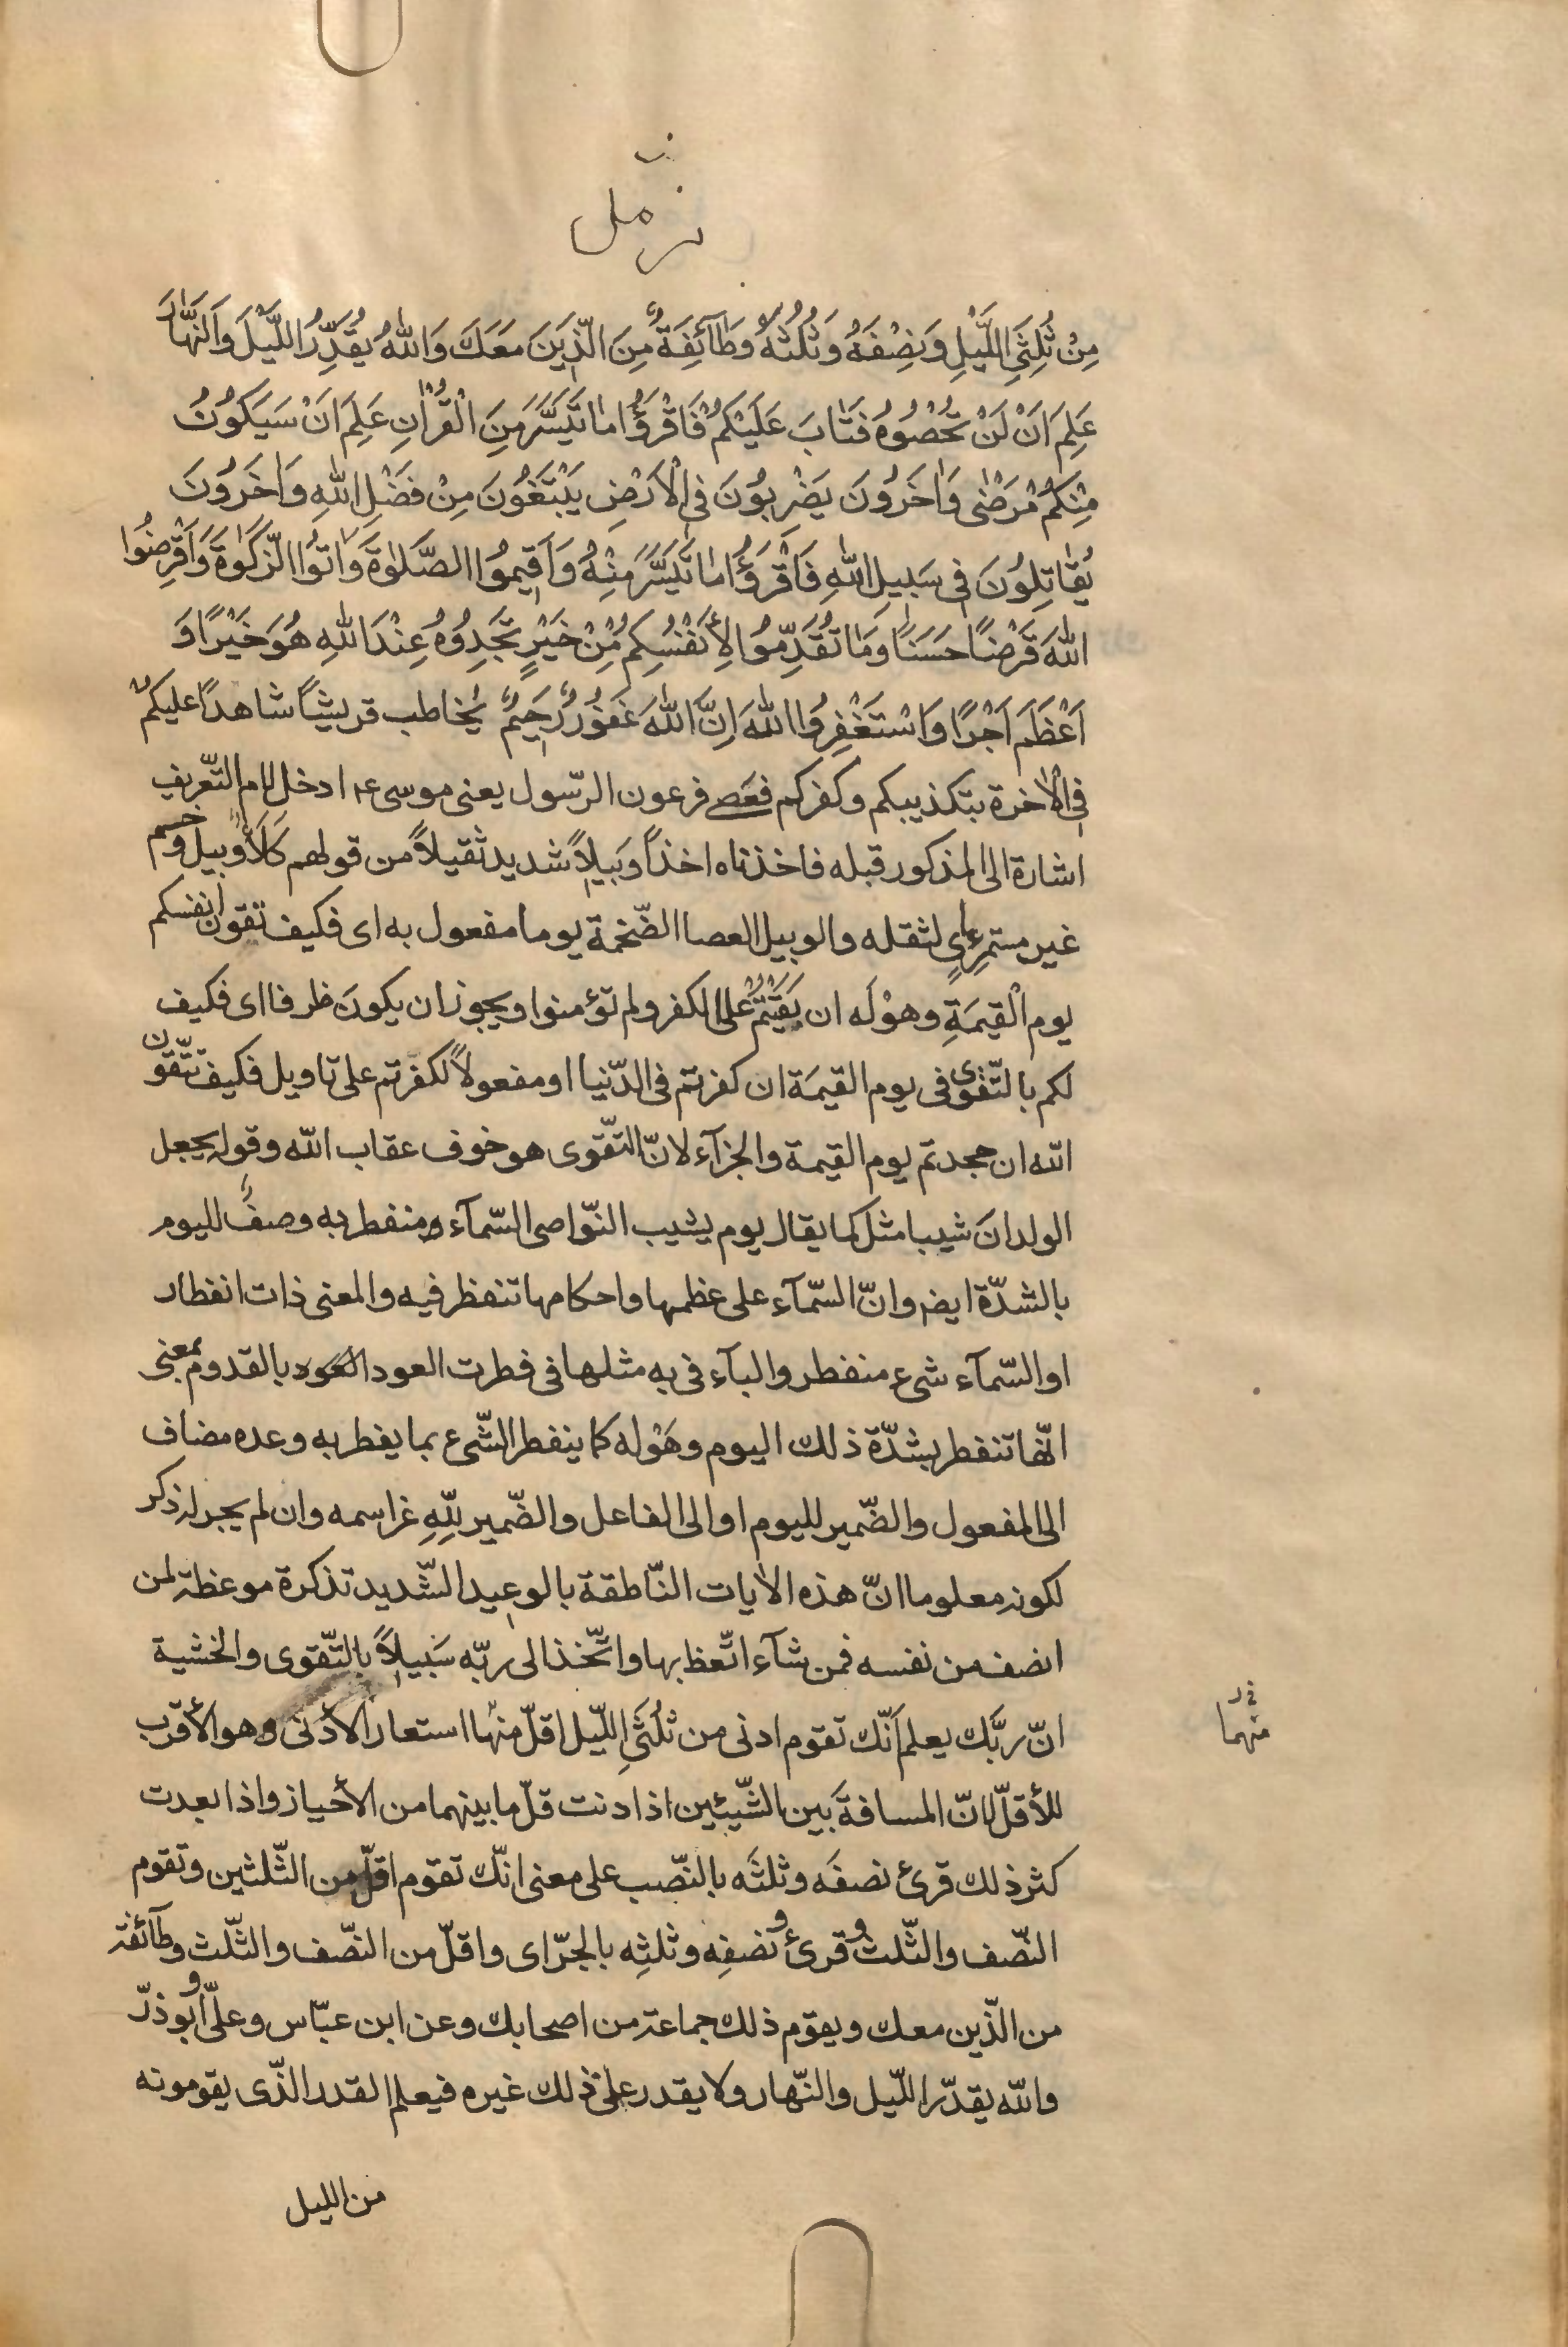 مزمل
مِنْ ثُلُثَيِ اللَّيْلِ وَنِصْفَهُ وَثُلُثَهُ وَطَآئِفَةٌ مِنَ الَّذِينَ مَعَكَ وَاللهُ يُقَدِّرُ اللَّيْلَ وَالنَّهَارَ
عَلِمَ اَنْ لَنْ تُحْصُوهُ فَتَابَ عَلَيْكُمْ فَاقْرَؤُا مَا تَيَسَّرَ مِنَ الْقُرْاٰنِ عَلِمَ اَنْ سَيَكُونُ
مِنْكُمْ مَرْضٰى وَاٰخَرُونَ يَضْرِبُونَ فِى الْاَرْضِ يَبْتَغُونَ مِنْ فَضْلِ اللهِ وَاٰخَرُونَ
يُقَاتِلُونَ فِى سَبِيلِ اللهِ فَاقْرَؤُا مَا تَيَسَّرَ مِنْهُ وَاَقِيمُوا الصَّلٰوةَ وَاٰتُوا الزَّكٰوةَ وَاَقْرِضُوا
اللهَ قَرْضًا حَسَنًا وَمَا تُقَدِّمُوا لِأَنْفُسِكُمْ مِنْ خَيْرٍ تَجِدُوهُ عِنْدَ اللهِ هُوَ خَيْرًا وَ
اَعْظَمَ اَجْرًا وَاسْتَغْفِرُوا اللهَ اِنَّ اللهَ غَفُورٌ رَحِيمٌ يخاطب قريشًا شاهدًا عليكم
فى الاٰخرة بتكذيبكم وكفركم فعَصٰى فرعون الرّسول يعنى موسى عم ادخل لام التّعريف
اشارة الى المذكور قبله فاخذناه اخذًا وَبيلًا شديد ثقيلًا من قولهم كَلَأٌ وبيل وخم
غير مستمرءٍ لثقله والوبيل العصا الضّخمة يوما مفعول به اى فكيف تقون انفسكم
يوم الْقيمَةِ وهوْلَه ان بَقَيْتُمْ على الكفر ولم تؤمنوا ويجوز ان يكونَ ظرفا اى فكيف
لكم بالتّقوى فى يوم القيمَة ان كفرتم فى الدّنيا او مفعولًا لكفرتم على تاويل فكيف تتّقون
الله ان جحدتم يوم القيمة والجزآء لانّ التّقوى هو خوف عقاب الله وقوله يجعل
الولدانَ شيبا مثل كما يقال يوم يشيب النّواصى السّمآء منفطر به وصفٌ لليوم
بالشدّة ايضا وانّ السّمآء على عظمها واحكامها تنفطر فيه والمعنى ذات انفطار
او السّمآء شىء منفطر والبآء فى به مثلها فى فطرت العود بالقدوم بمعنى
انّها تنفطر بشدّة ذلك اليوم وهَوْله كما ينفطر الشّىء بما يفطر به وعده مضاف
الى المفعول والضّمير لليوم او الى الفاعل والضّمير للهِ عز اسمه وان لم يجر له ذكر
لكونه معلوما انّ هذه الاٰيات النّاطقة بالوعيد الشّديد تذكرة موعظة لمن
انصف من نفسه فمن شآء اتّعظ بها واتّخذ الى ربّه سَبيلًا بالتّقوى والخشية
انّ ربَّك يعلم اَنّك تقوم ادنى من ثلُثَىِ اللّيل اقلّ منها استعار الأدنى وهو الأقرب
للأقلّ لانّ المسافةَ بين الشّيئين اذا دنت قلّ ما بينهما من الأحياز واذا بعدت
كثر ذلك قرئ نصفَه وثلثَه بالنّصب على معنى انّك تقوم اقلّ من الثّلثين وتقوم
النّصف والثّلث وقرئ ونصفِه وثلثِه بالجرّ اى واقلّ من النّصف والثّلث وطآئفة
من الّذين معك ويقوم ذلك جماعة من اصحابك وعن ابن عبّاس وعلىّ وابو ذرّ
والله يقدّر اللّيل والنّهار ولا يقدر على ذلك غيره فيعلم القدر الّذى يقومونه
من الليل
منهما